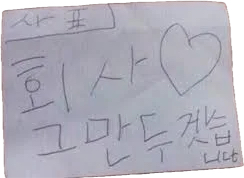 사표
회사♡
그만두겟습
니당